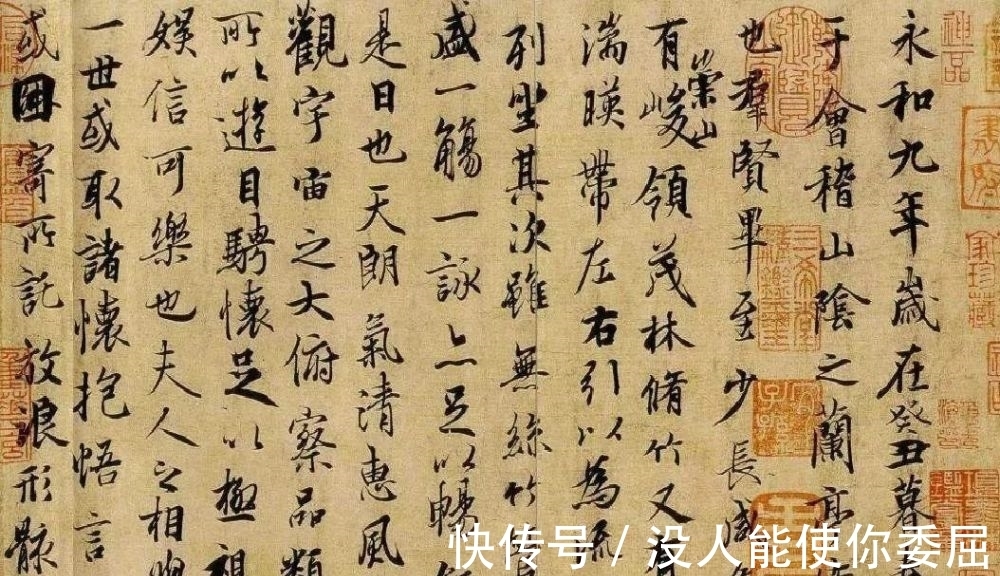 永和九年歲在癸丑暮
于會稽山陰之蘭亭
也羣賢畢至少長咸
有崇山峻領茂林脩竹又
湍暎帶左右引以為流
列坐其次雖無絲竹
盛一觴一詠亦足以暢
是日也天朗氣清惠風
觀宇宙之大俯察品類
所以遊目騁懷足以極視
娛信可樂也夫人之相與
一世或取諸懷抱悟言
或因寄所託放浪形骸
神品
快传号 / 没人能使你委屈